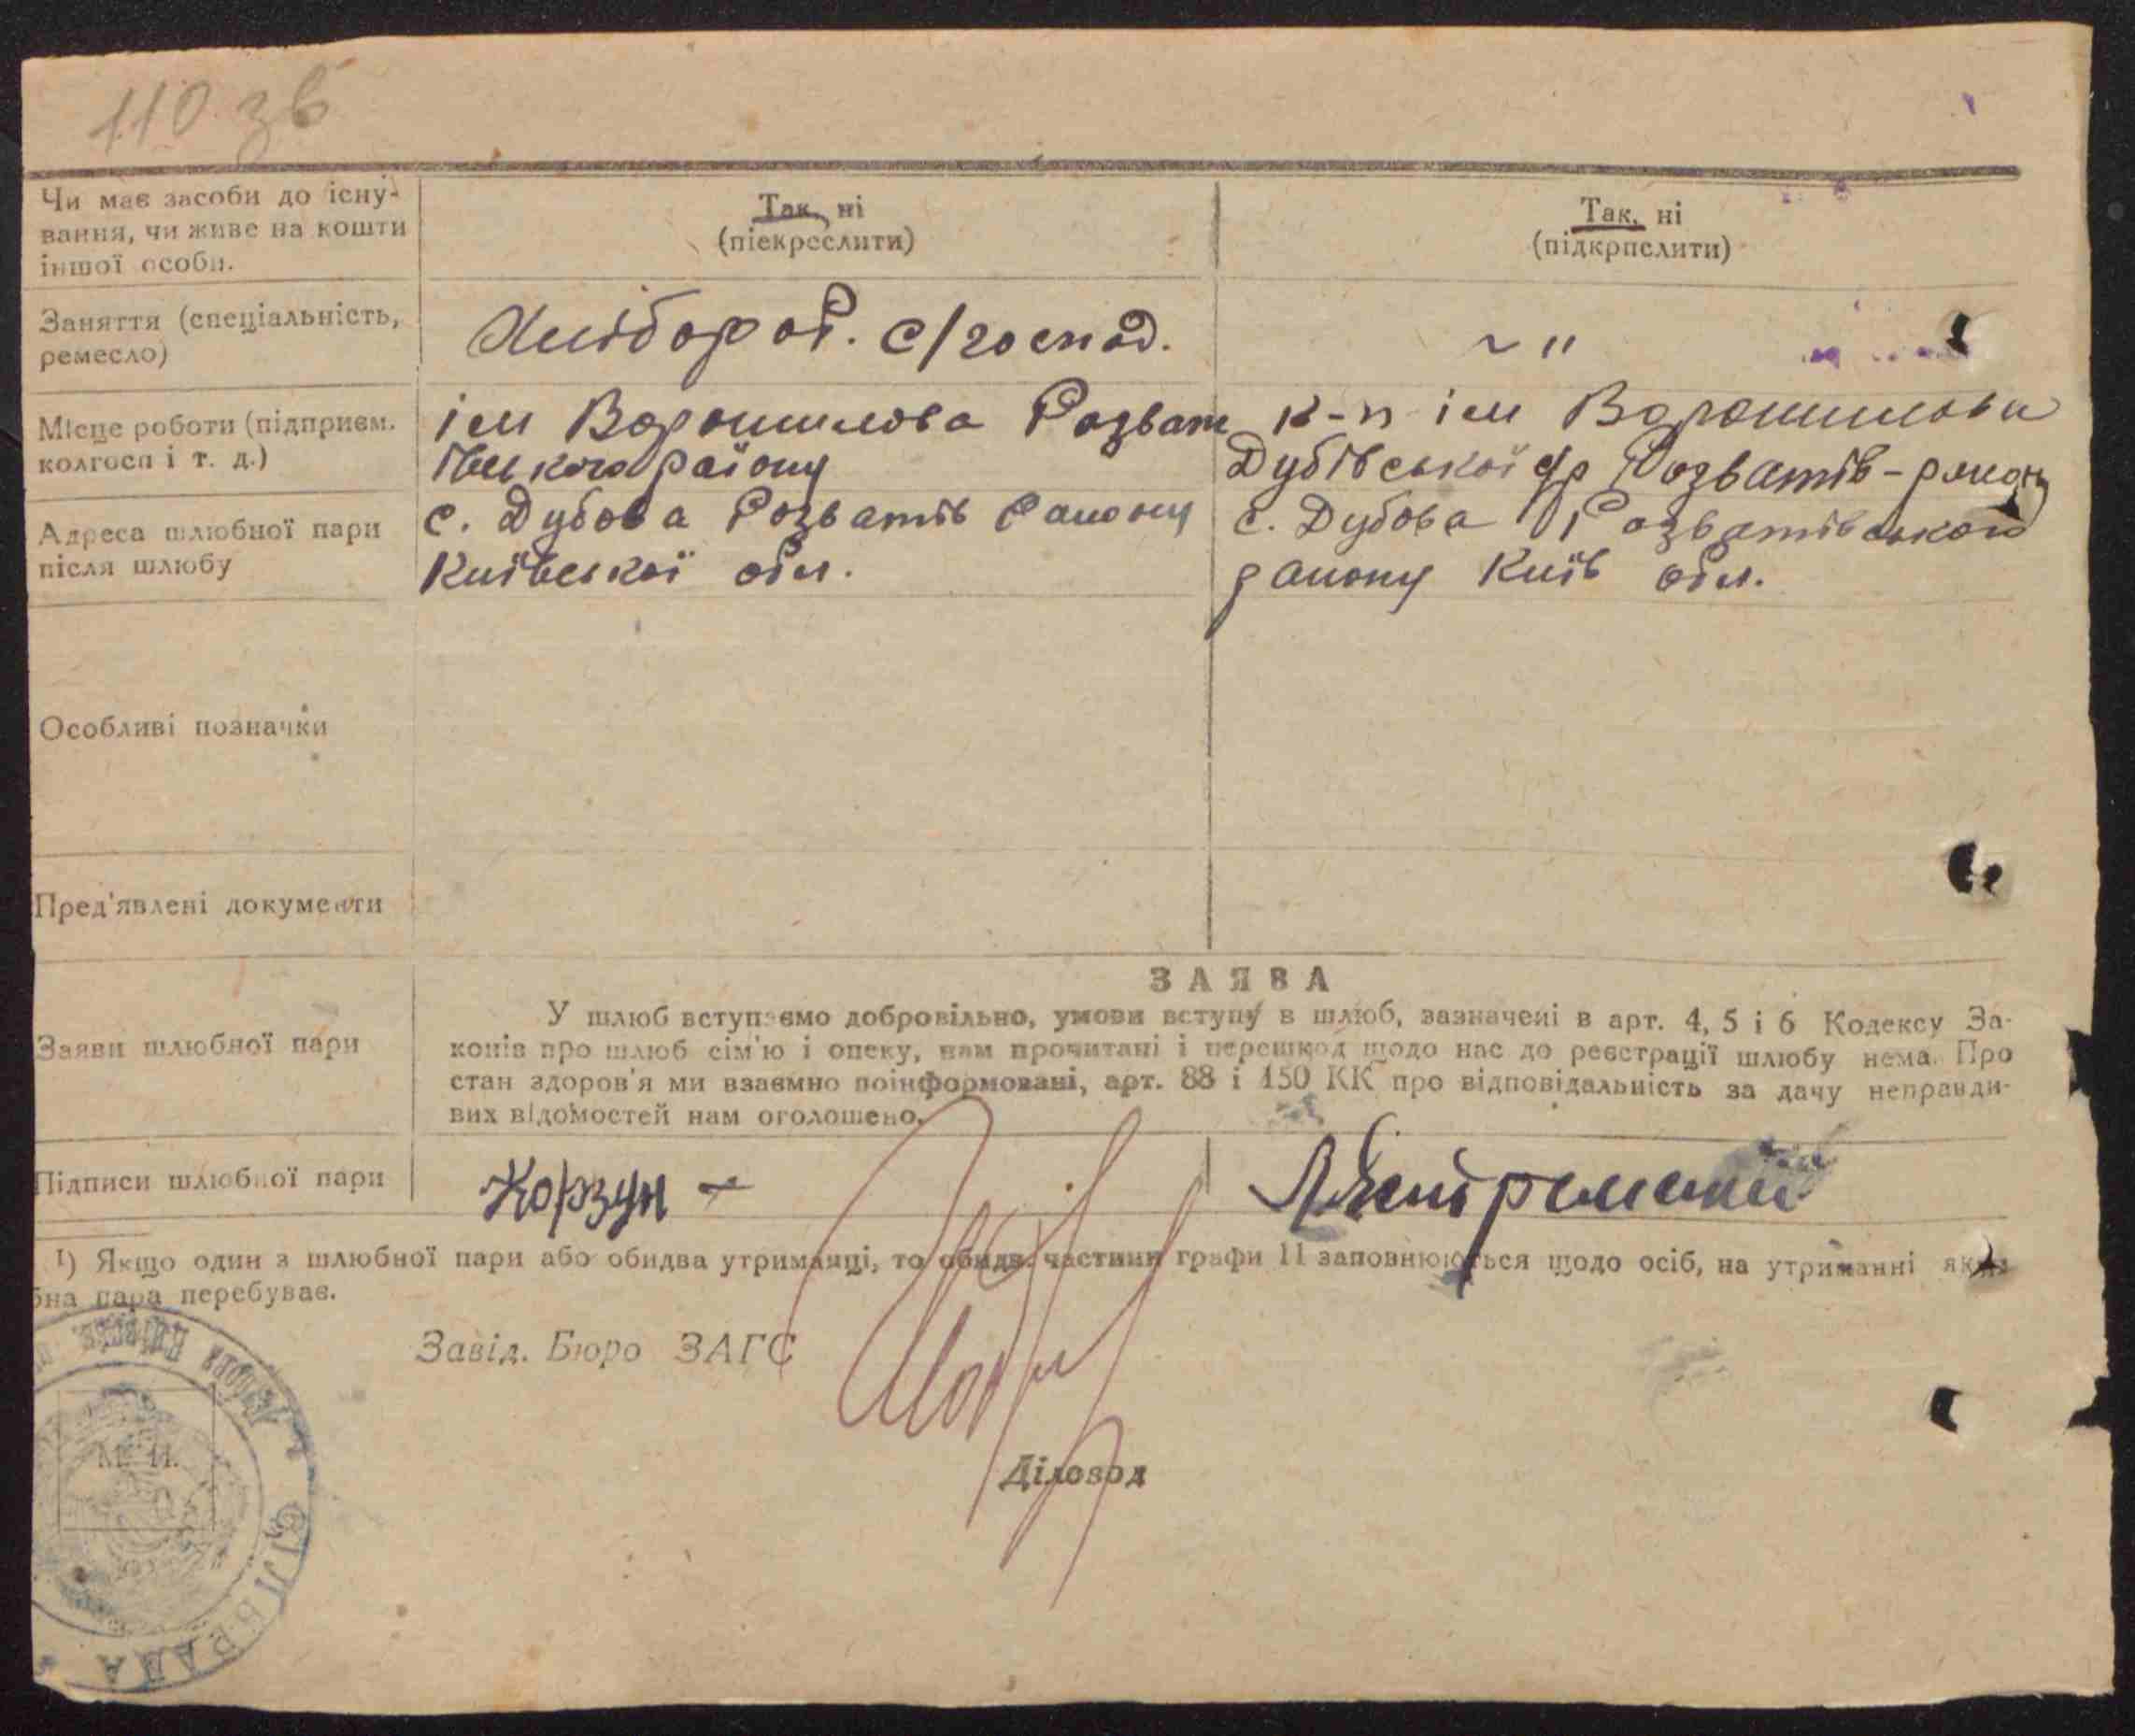 110 зв
Чи має засоби до існу-
вання, чи живе на кошти
іншої особи.
Так, ні
(піекреслити)
Так, ні
(підкрпслити)
Заняття (спеціальність,
ремесло)
Хлібороб. с/господ.
~ "
Місце роботи (підприєм.
колгосп і т. д.)
ім Ворошилова Розват
івського району
к-п ім Ворошилова
Дубівської с/р Розватів-району
Адреса шлюбної пари
після шлюбу
с. Дубова Розватів району
Київської обл.
с. Дубова Розватівського
району Київ обл.
Особливі позначки
Пред'явлені документи
ЗАЯВА
Заяви шлюбної пари
У шлюб вступаємо добровільно, умови вступу в шлюб, зазначені в арт. 4, 5 і 6 Кодексу За-
конів про шлюб сім'ю і опеку, нам прочитані і перешкод щодо нас до реєстрації шлюбу нема. Про
стан здоров'я ми взаємно поінформовані, арт. 88 і 150 КК про відповідальність за дачу неправди-
вих відомостей нам оголошено.
Підписи шлюбної пари
Корзун
1) Якщо один з шлюбної пари або обидва утриманці, то обидві частини графи 11 заповнюються щодо осіб, на утриманні яких
бна пара перебуває.
Завід. Бюро ЗАГС
М. П.
Діловод
СІЛЬРАДА